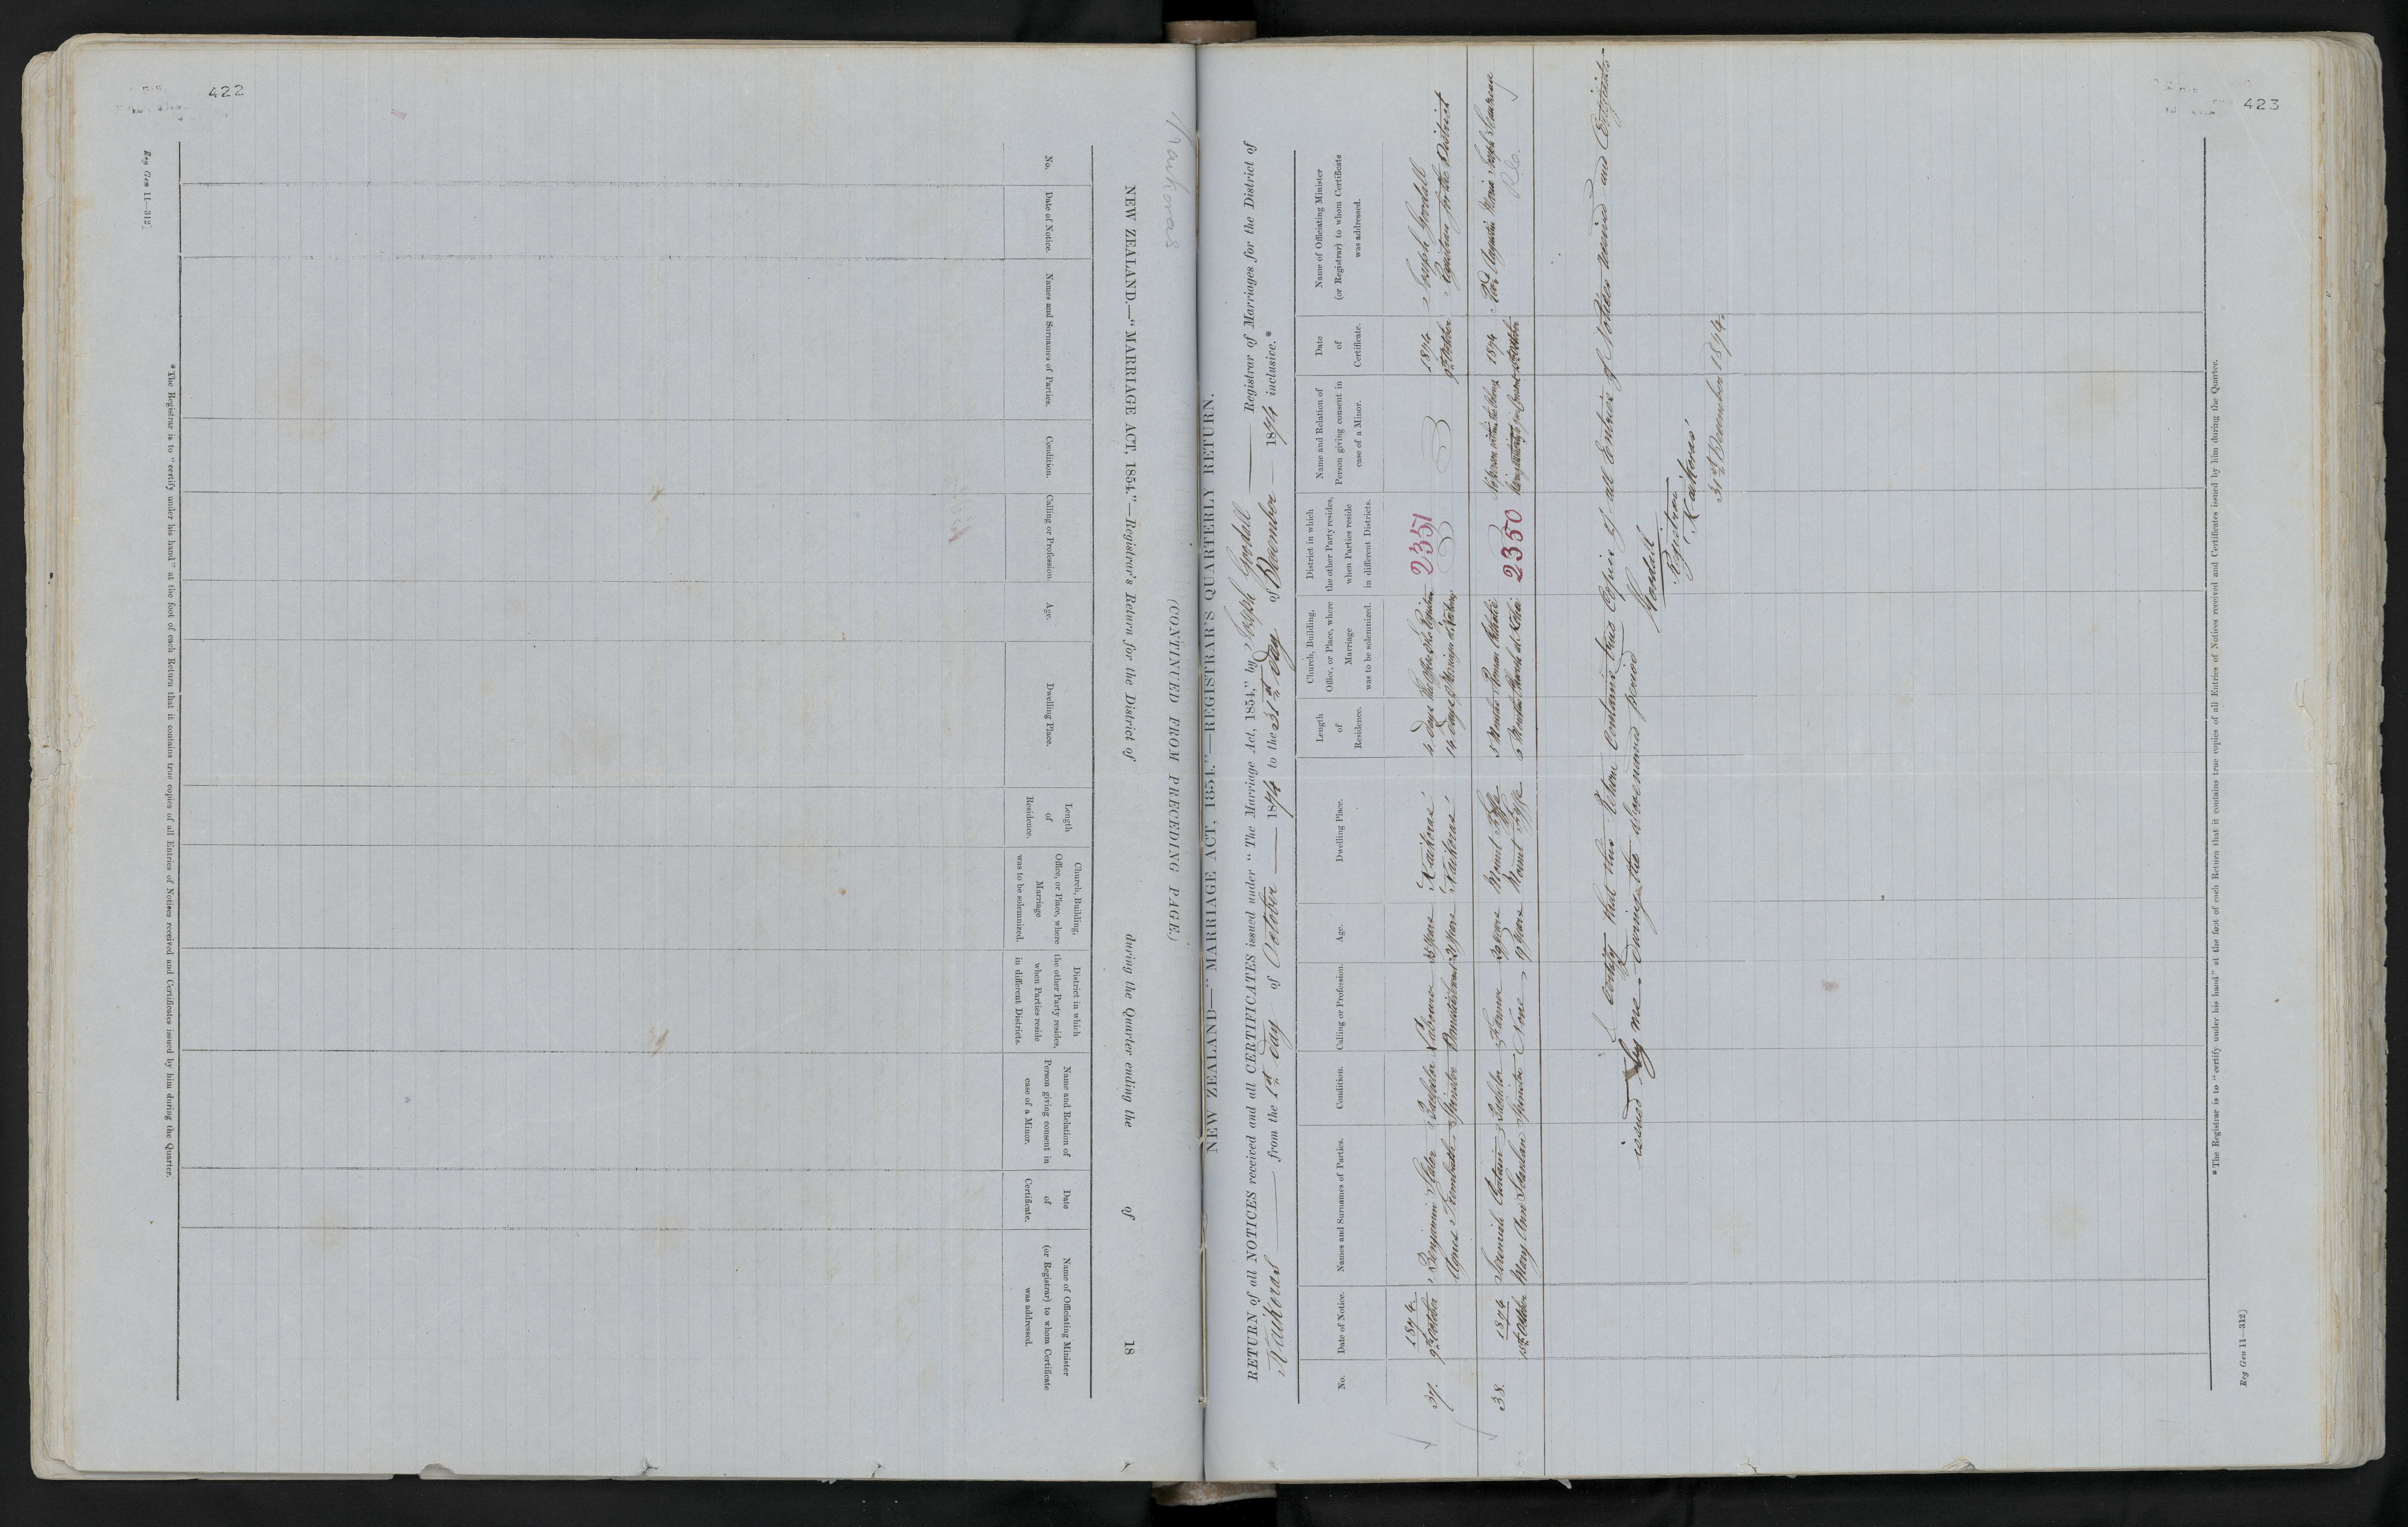 422
Kaikoras
(CONTINUED FROM PRECEDING PAGE.)
NEW ZEALAND.—“MARRIAGE ACT, 1854.”—Registrar's Return for the District of during the Quarter ending the of 18
No.
Date of Notice.
Names and Surnames of Parties.
Condition.
Calling or Profession.
Age.
Dwelling Place.
Length
of
Residence.
Church, Building,
Office, or Place, where
Marriage
was to be solemnized.
District in which
the other Party resides,
when Parties reside
in different Districts.
Name and Relation of
Person giving consent in
case of a Minor.
Date
of
Certificate.
Name of Officiating Minister
(or Registrar) to whom Certificate
was addressed.
* The Registrar is to “certify under his hand” at the foot of each Return that it contains true copies of all Entries of Notices received and Certificates issued by him during the Quarter.
Reg Gen 11—312]
423
NEW ZEALAND—“MARRIAGE ACT, 1854.”—REGISTRAR'S QUARTERLY RETURN.
RETURN of all NOTICES received and all CERTIFICATES issued under “The Marriage Act, 1854,” by Joseph Goodall Registrar of Marriages for the District of
Kaikoras from the 1st day of October 1874 to the 31st day of December 1874 inclusive.*
No.
Date of Notice.
Names and Surnames of Parties.
Condition.
Calling or Profession.
Age.
Dwelling Place.
Length
of
Residence.
Church, Building,
Office, or Place, where
Marriage
was to be solemnized.
District in which
the other Party resides,
when Parties reside
in different Districts.
Name and Relation of
Person giving consent in
case of a Minor.
Date
of
Certificate.
Name of Officiating Minister
(or Registrar) to whom Certificate
was addressed.
37.
1874.
9th October
Benjamin
Agnes
Bachelor
Spinster
Labourer
Domestic Servant
21 years
Kaikoras
Kaikoras
4 days
14 days
2351
1874
9th October
Joseph Goodall
Registrar for the District
38.
1874
Jeremiah
Mary Ann Scanlan
Bachelor
Spinster
Farmer
None
29 years
19 years
Mount
Mount
Roman Catholic
Church at
2350
1874
October
Revd Augustin Marie Joseph
R.C.
I Certify that this Return Contains true Copies of all Entries of Notices received and Certificates
issued by me during the abovenamed period
Goodall
Registrar
Kaikoras
31st December 1874.
* The Registrar is to “certify under his hand” at the foot of each Return that it contains true copies of all Entries of Notices received and Certificates issued by him during the Quarter.
Reg Gen 11—312]